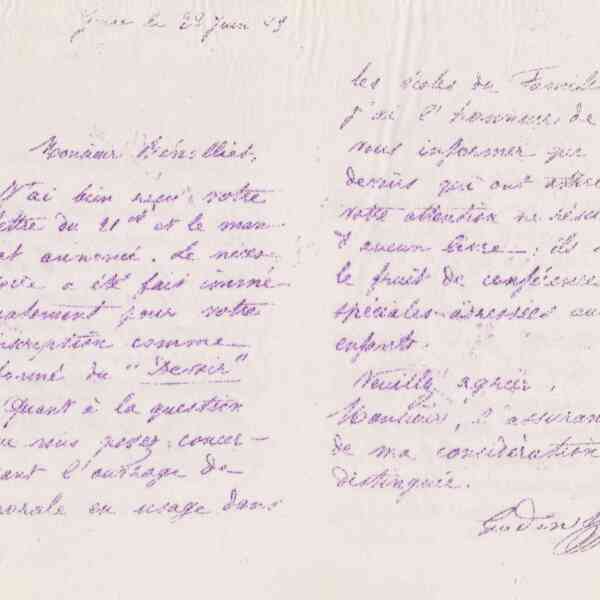 Guise le 29 Juin 89
Monsieur
J'ai bien reçu votre
lettre du 21 ct et le man-
dat annoncé. Le néces-
saire a été fait immé-
diatement pour votre
inscription comme
abonné du "Devoir"
Quant à la question
que vous posez concer-
nant l'ouvrage de
morale en usage dans
les écoles du Familis
j'ai l'honneur de
vous informer que
devoirs qui ont attiré
votre attention ne résul
d'aucun livre ; ils
le fruit de conférence
spéciales adressées au
enfants.
Veuillez agréer,
Monsieur, l'assuran
de ma considération
distinguée.
Godin